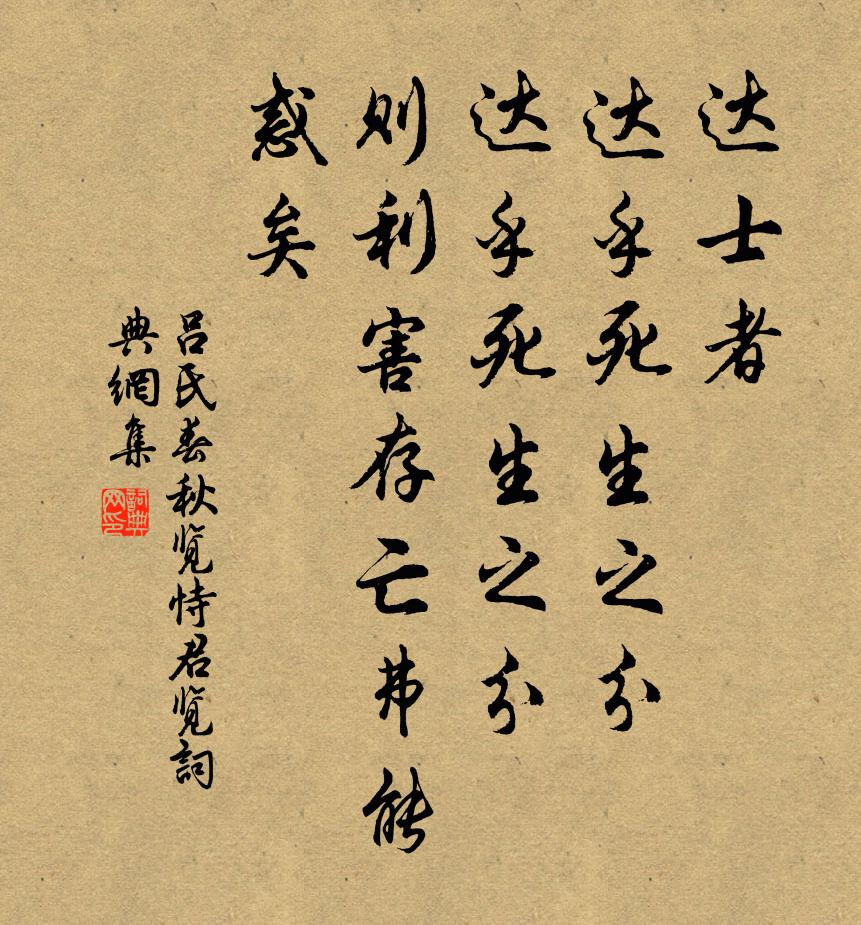 达士者
达乎死生之分
达乎死生之分
则利害存亡弗能
惑矣
吕氏春秋览恃君览詞
典網集
詞典
网印